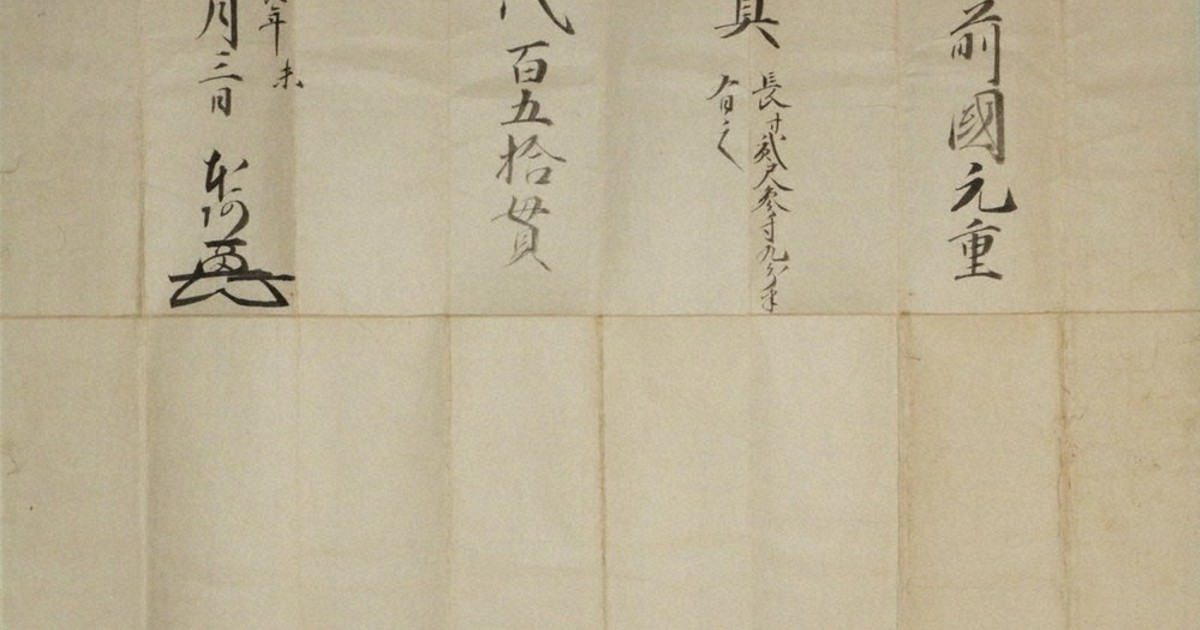 前國元重
真
長サ貳尺参寸九分半
有之
代百五拾貫
年未
月三日 本阿